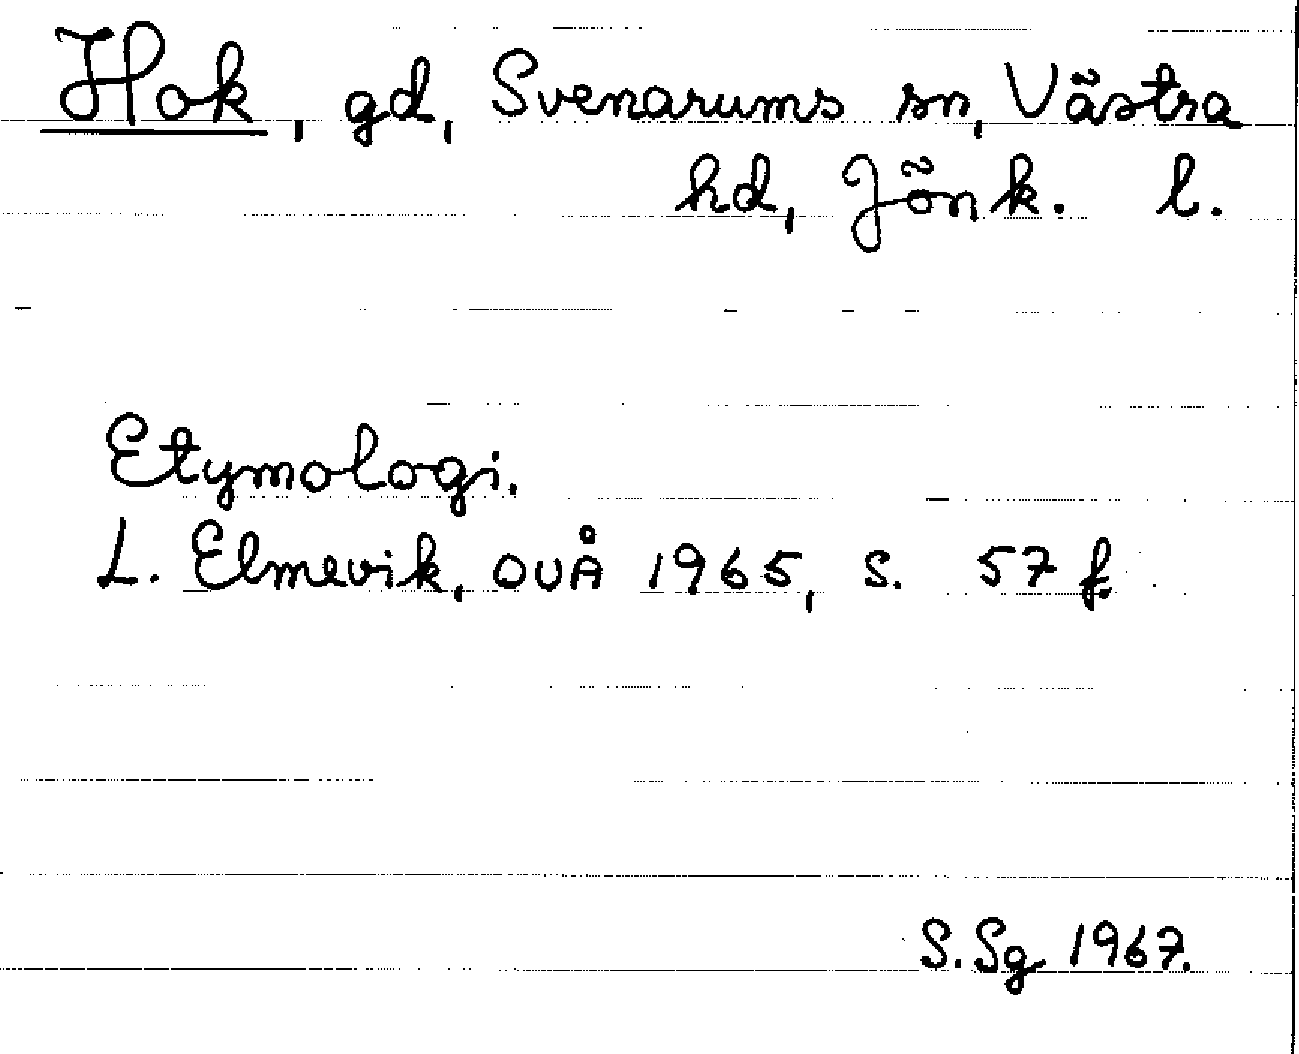 Hok, gd, Svenarums sn, Västra
hd, Jönk. l.
Etymologi.
L. Elmevik, OUÅ 1965, s. 57 f.
S. Sg 1967.